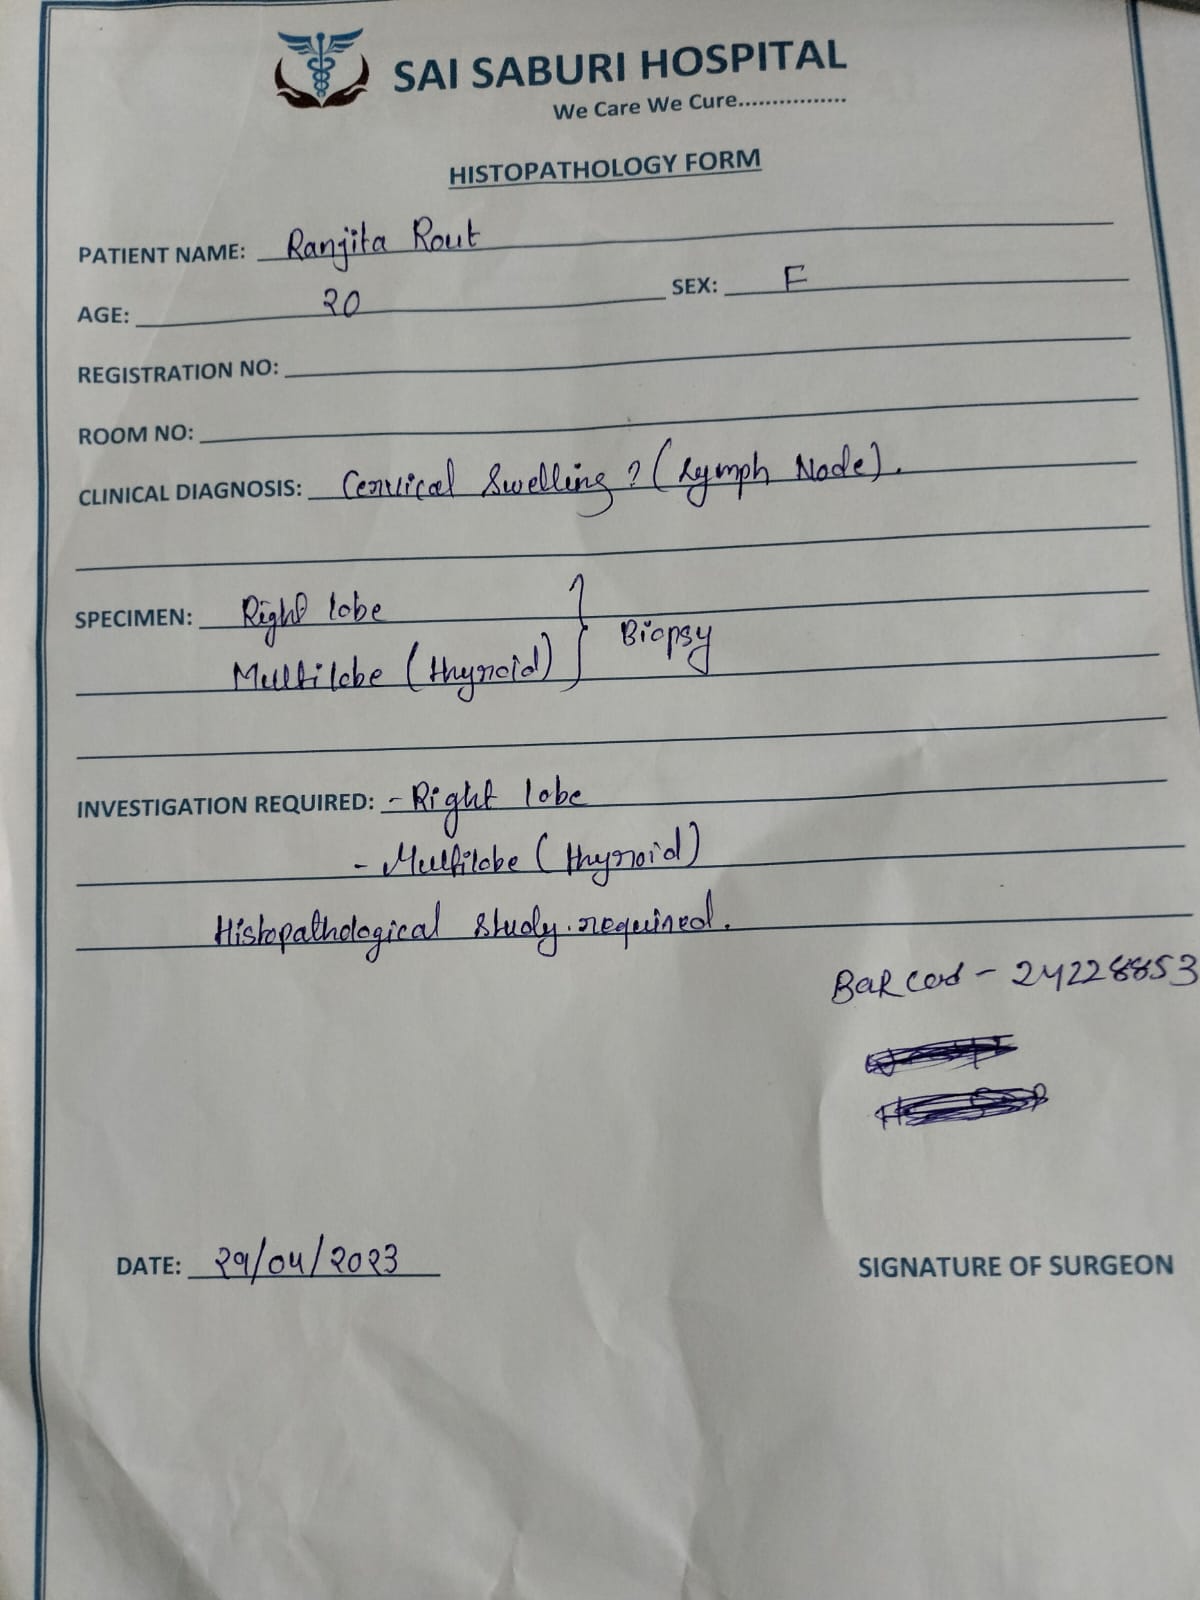 SAI SABURI HOSPITAL
We Care We Cure.................
HISTOPATHOLOGY FORM
PATIENT NAME: Ranjita Rout
AGE: 20 SEX: F
REGISTRATION NO:
ROOM NO:
CLINICAL DIAGNOSIS: Cervical Swelling ? (Lymph Node).
SPECIMEN: Right lobe
Multilobe (thyroid) } Biopsy
INVESTIGATION REQUIRED: - Right lobe
- Multilobe (thyroid)
Histopathological study required.
BaR cod - 24228853
DATE: 29/04/2023 SIGNATURE OF SURGEON